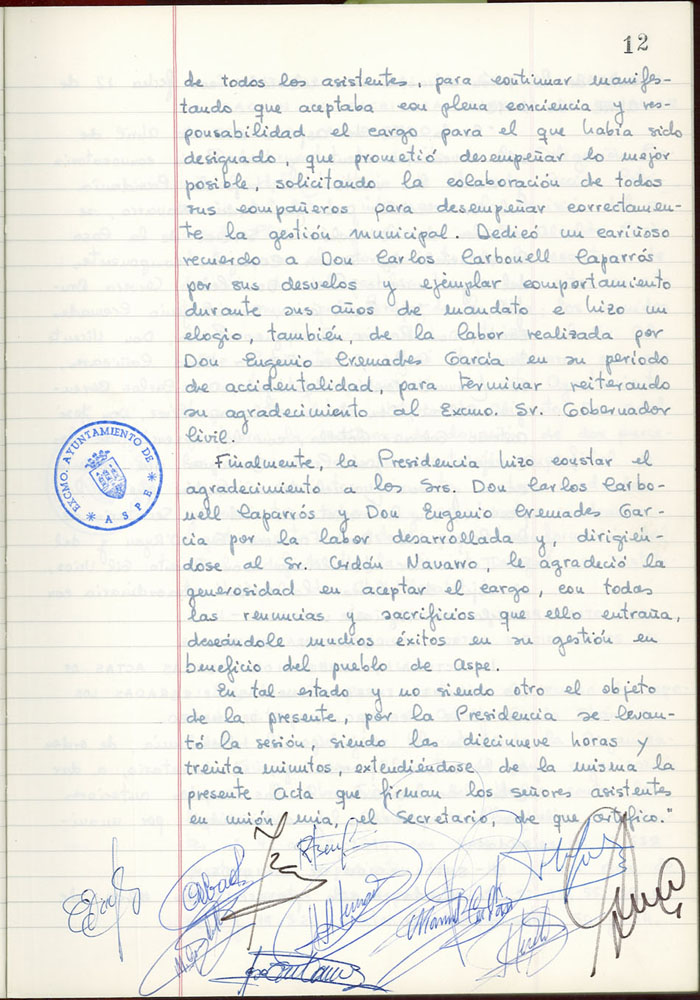 12
de todos los asistentes, para continuar manifes-
tando que aceptaba con plena conciencia y res-
ponsabilidad el cargo para el que había sido
designado, que prometió desempeñar lo mejor
posible, solicitando la colaboración de todos
sus compañeros para desempeñar correctamen-
te la gestión municipal. Dedicó un cariñoso
recuerdo a Don Carlos Carbonell Caparrós
por sus desvelos y ejemplar comportamiento
durante sus años de mandato e hizo un
elogio, también, de la labor realizada por
Don Eugenio Cremades García en su período
de accidentalidad, para terminar reiterando
su agradecimiento al Excmo. Sr. Gobernador
Civil.
Finalmente, la Presidencia hizo constar el
agradecimiento a los Srs. Don Carlos Carbo-
nell Caparrós y Don Eugenio Cremades Gar-
cía por la labor desarrollada y, dirigién-
dose al Sr. Cerdán Navarro, le agradeció la
generosidad en aceptar el cargo, con todas
las renuncias y sacrificios que ello entraña,
deseándole muchos éxitos en su gestión en
beneficio del pueblo de Aspe.
En tal estado y no siendo otro el objeto
de la presente, por la Presidencia se levan-
tó la sesión, siendo las diecinueve horas y
treinta minutos, extendiéndose de la misma la
presente Acta que firman los señores asistentes
en unión mía, el Secretario, de que certifico."
EXCMO. AYUNTAMIENTO DE
* ASPE *